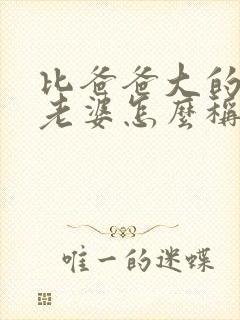 比爸爸大的
老婆怎麼稱
唯一的迷蝶